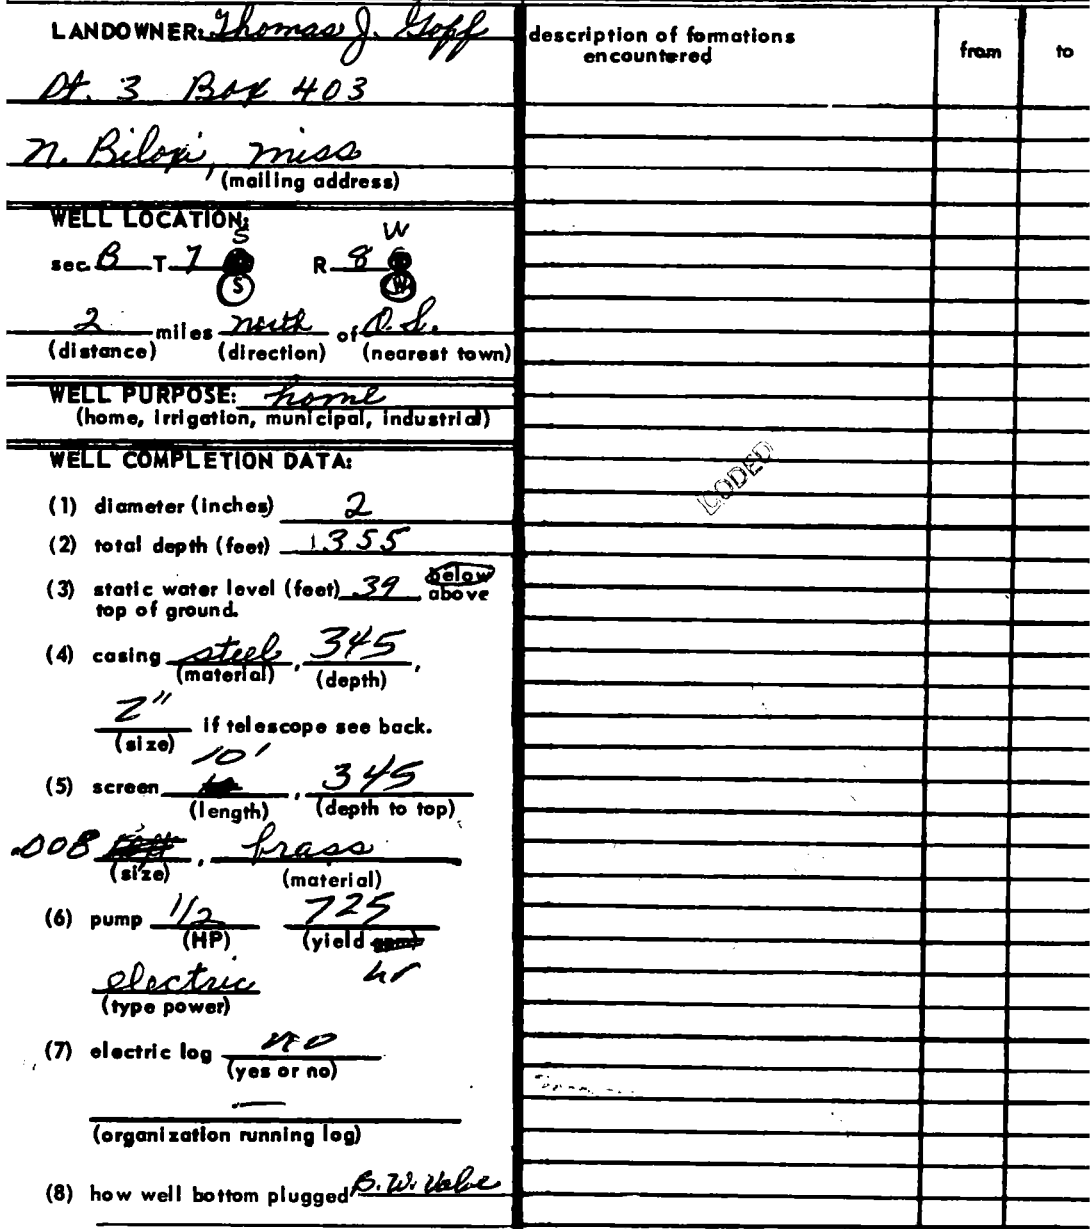 LANDOWNER: Thomas J. Goff
Rt. 3 Box 403
N. Biloxi, Miss
(mailing address)
WELL LOCATION:
S W
sec. B T 7 R 8
S W
2 miles north of O.S.
(distance) (direction) (nearest town)
WELL PURPOSE: home
(home, irrigation, municipal, industrial)
WELL COMPLETION DATA:
(1) diameter (inches) 2
(2) total depth (feet) 355
(3) static water level (feet) 39 below
above
top of ground.
(4) casing steel, 345,
(material) (depth)
2" if telescope see back.
(size)
10'
(5) screen , 345
(length) (depth to top)
.008 , brass
(size) (material)
(6) pump 1/2 725
(HP) (yield gpm)
hr
electric
(type power)
(7) electric log no
(yes or no)
—
(organization running log)
(8) how well bottom plugged B.W. Valve
description of formations
encountered
from to
CODED